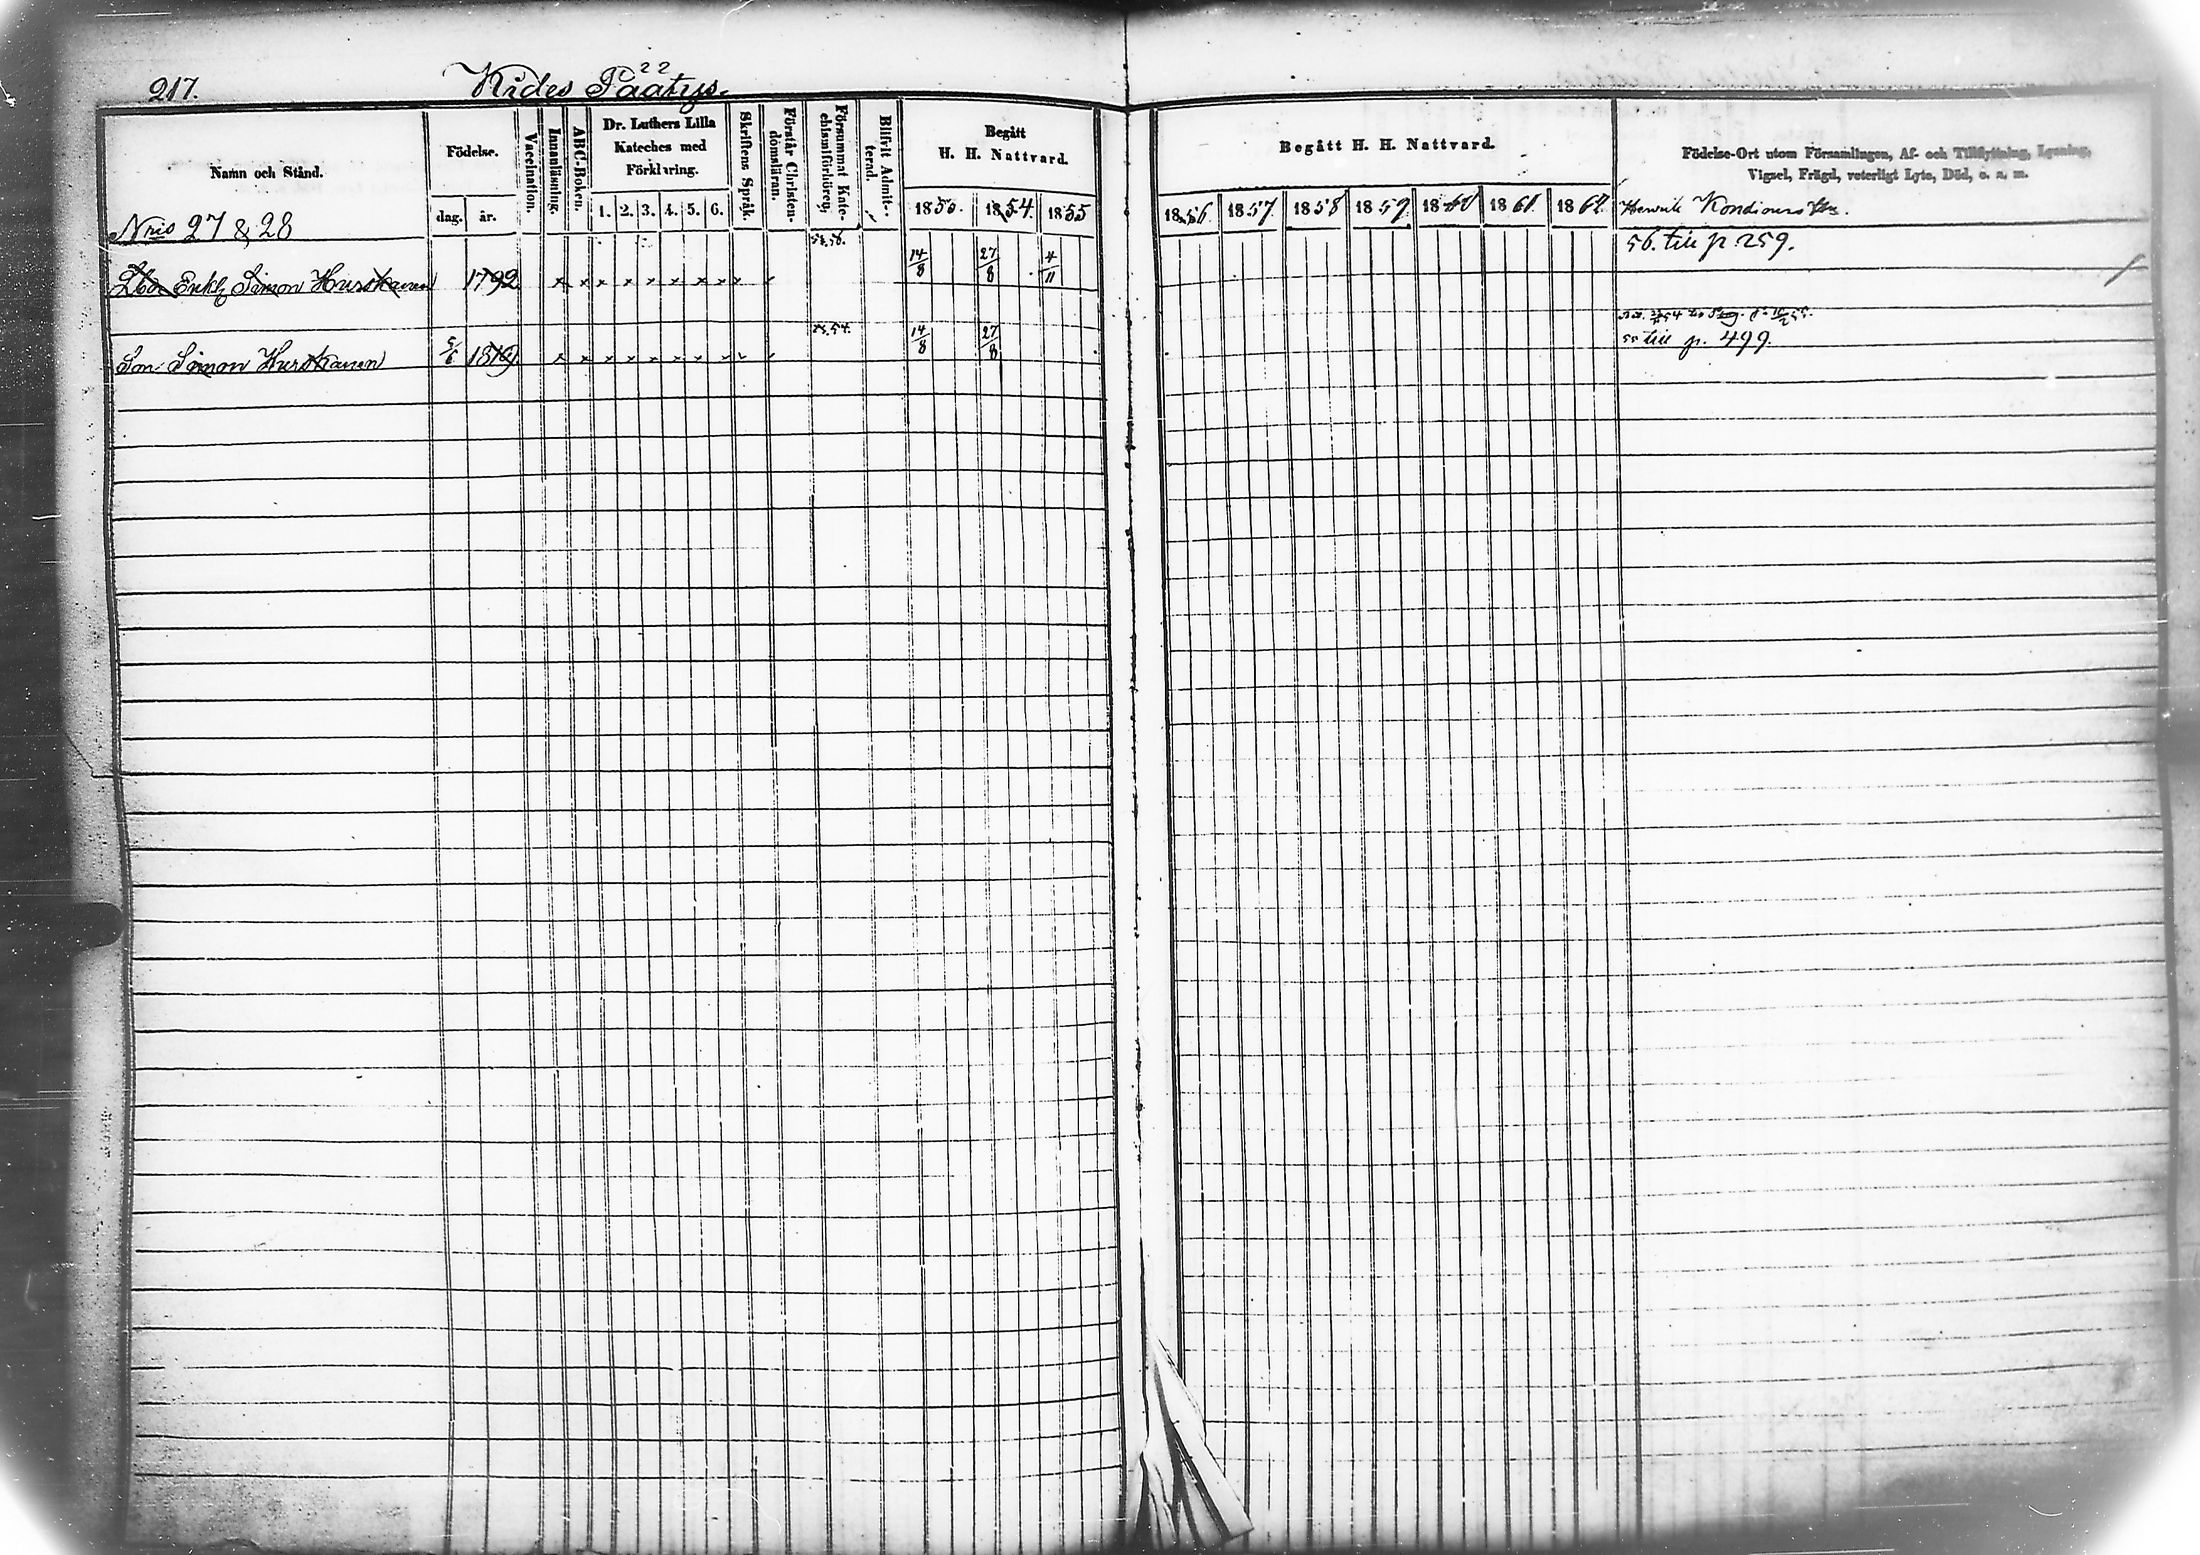 217.
Kides Päätys.
22
Namn och Stånd.
Födelse.
dag. år.
Vaccination.
Innanläsning.
ABC-Boken.
Dr. Luthers Lilla
Kateches med
Förklaring.
1. 2. 3. 4. 5. 6.
Skriftens Språk.
Förstår Christen-
domsläran.
Försummat Kate-
chismiförhören.
Blifvit Admit-
terad.
Begått
H. H. Nattvard.
1850. 1854. 1855
Begått H. H. Nattvard.
1856. 1857 1858 1859. 1860 1861 1862.
Födelse-Ort utom Församlingen, Af- och Tillflyttning, Lysning,
Vigsel, Frägd, veterligt Lyte, Död, o. s. m.
Nris 27 & 28
Henrik Kondiours
56. till p 259.
Enkl. Simon Hurskainen 1792 x x x x x x x x x 14/8 27/8 4/11
Son Simon Hurskainen 5/6 1819 x x x x x x x x x 53.54. 14/8 27/8
55 till p. 499.